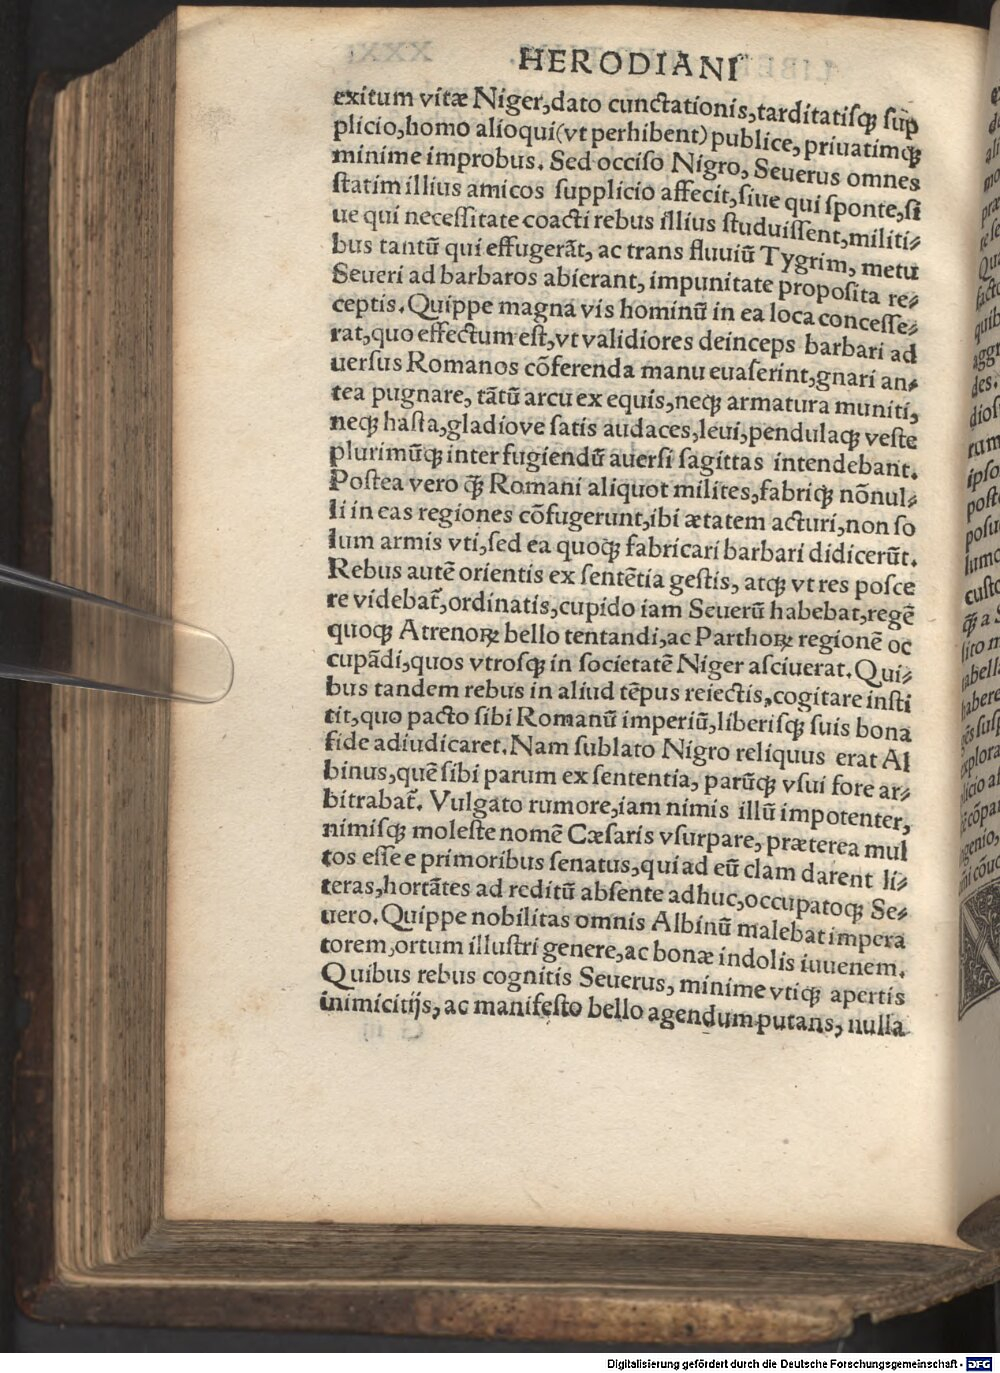 HERODIANI
exitum vitæ Niger, dato cunctationis, tarditatisq̃ sup
plicio, homo alioqui (vt perhibent) publice, priuatimq̃
minime improbus. Sed occiso Nigro, Seuerus omnes
ſtatim illius amicos ſupplicio affecit, ſiue qui ſponte, ſi
ue qui neceſſitate coacti rebus illius ſtuduiſſent, militi⸗
bus tantū qui effugerāt, ac trans fluuiū Tygrim, metu
Seueri ad barbaros abierant, impunitate propoſita re⸗
ceptis. Quippe magna vis hominū in ea loca conceſſe⸗
rat, quo effectum eſt, vt validiores deinceps barbari ad
uerſus Romanos cōferenda manu euaſerint, gnari an⸗
tea pugnare, tātū arcu ex equis, neq̃ armatura muniti,
neq̃ haſta, gladiove ſatis audaces, leui, pendulaq̃ veſte
plurimūq̃ inter fugiendū auerſi ſagittas intendebant.
Poſtea vero q̃ Romani aliquot milites, fabriq̃ nōnul⸗
li in eas regiones cōfugerunt, ibi ætatem acturi, non ſo
lum armis vti, ſed ea quoq̃ fabricari barbari didicerūt.
Rebus autē orientis ex ſentētia geſtis, atq̃ vt res poſce
re videbat̃, ordinatis, cupido iam Seuerū habebat, regē
quoq̃ Atrenoꝝ bello tentandi, ac Parthoꝝ regionē oc
cupādi, quos vtroſq̃ in ſocietatē Niger aſciuerat. Qui⸗
bus tandem rebus in aliud tēpus reiectis, cogitare inſti
tit, quo pacto ſibi Romanū imperiū, liberiſq̃ ſuis bona
fide adiudicaret. Nam ſublato Nigro reliquus erat Al
binus, quē ſibi parum ex ſententia, parūq̃ vſui fore ar⸗
bitrabat̃. Vulgato rumore, iam nimis illū impotenter,
nimiſq̃ moleſte nomē Cæſaris vſurpare, præterea mul
tos eſſe e primoribus ſenatus, qui ad eū clam darent li⸗
teras, hortātes ad reditū abſente adhuc, occupatoq̃ Se⸗
uero. Quippe nobilitas omnis Albinū malebat impera
torem, ortum illuſtri genere, ac bonæ indolis iuuenem.
Quibus rebus cognitis Seuerus, minime vtiq̃ apertis
inimicitijs, ac manifeſto bello agendum putans, nulla
Digitalisierung gefördert durch die Deutsche Forschungsgemeinschaft - DFG